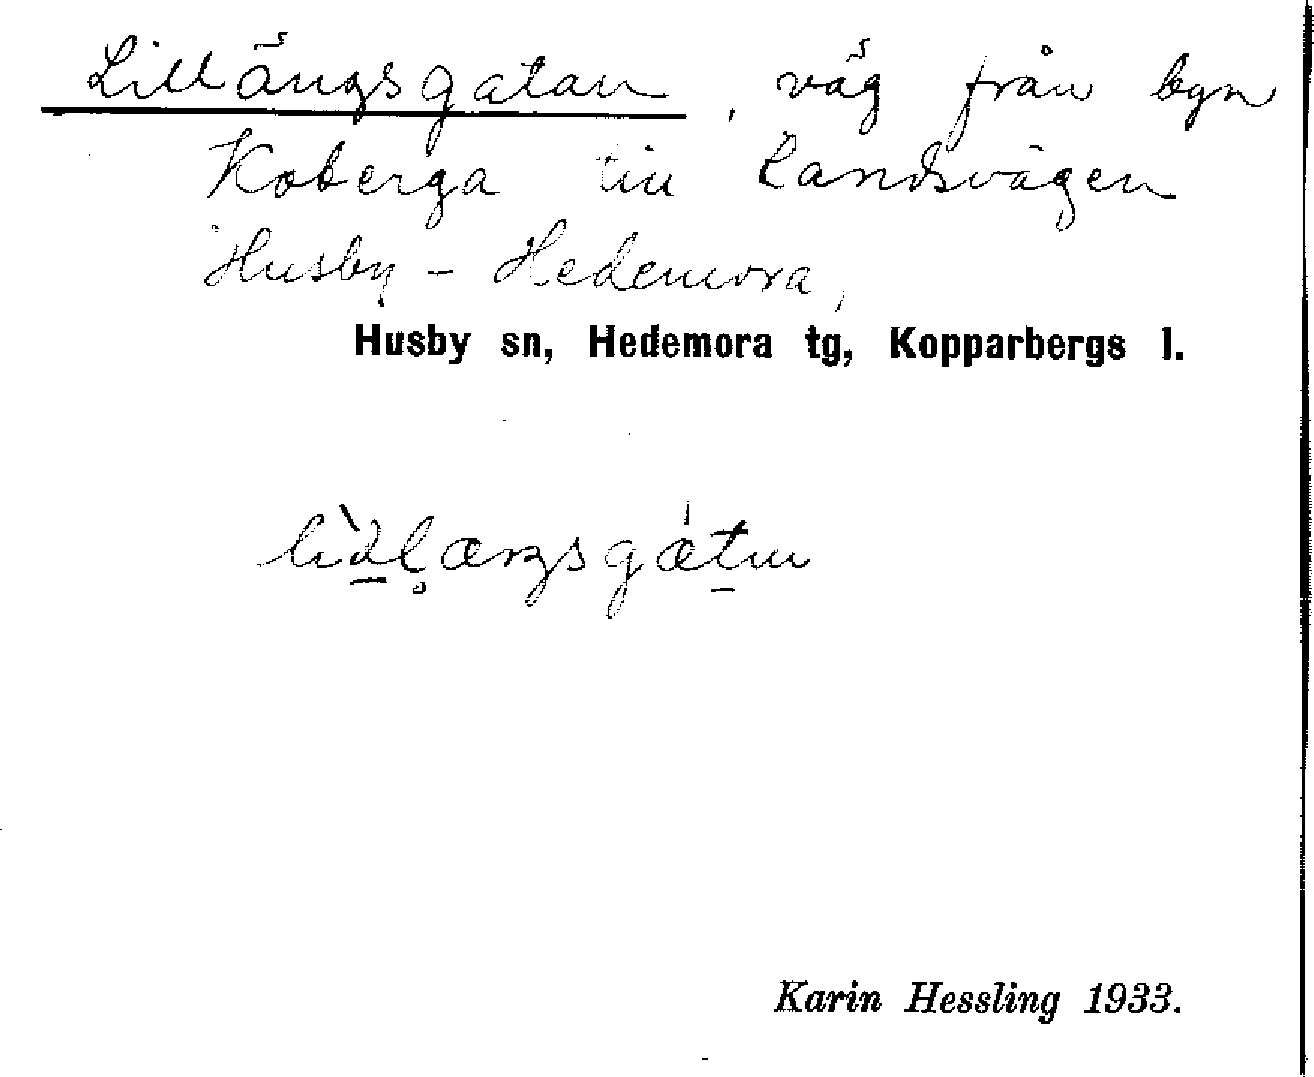 Lillängsgatan, väg från byn
Koberga till landsvägen
Husby - Hedemora,
Husby sn, Hedemora tg, Kopparbergs l.
Karin Hessling 1933.